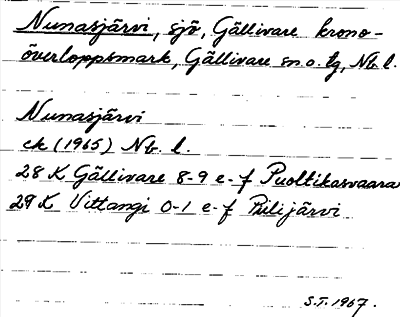 Nunasjärvi, sjö, Gällivare krono-
överloppsmark, Gällivare sn. o. tg, Nb. l.
Nunasjärvi
ek (1965) Nb. l.
28 K Gällivare 8-9 e-f Puoltikasvaara
29 K Vittangi 0-1 e-f Piilijärvi
S.T. 1967.